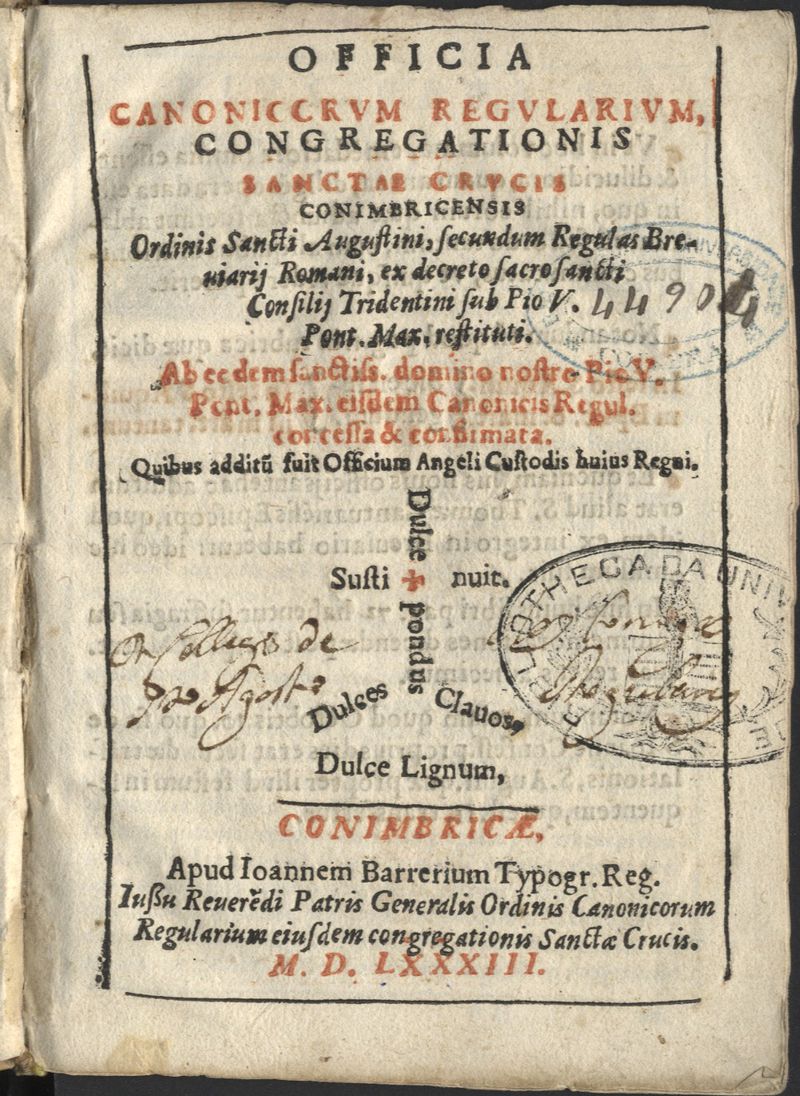 OFFICIA
CANONICCRVM REGVLARIVM,
CONGREGATIONIS
SANCTAE CRVCIS
CONIMBRICENSIS
Ordinis Sancti Augustini, ſecundum Regulas Bre-
uiarij Romani, ex decreto ſacroſancti
Conſilij Tridentini ſub Pio V.
44904
Pont. Max. reſtituti.
Ab eodem ſanctiſs. domino noſtro Pio V.
Pont. Max. eiſdem Canonicis Regul.
conceſſa & confirmata.
Quibus additū fuit Officium Angeli Cuſtodis huius Regni.
Dulce
Suſti ✠ nuit.
pondus
Dulces Clauos,
Dulce Lignum,
BIBLIOTHECA DA UNIV
Collegio de
CONIMBRICÆ,
Apud Ioannem Barrerium Typogr. Reg.
Iuſſu Reuerēdi Patris Generalis Ordinis Canonicorum
Regularium eiuſdem congregationis Sanctæ Crucis.
M. D. LXXXIII.